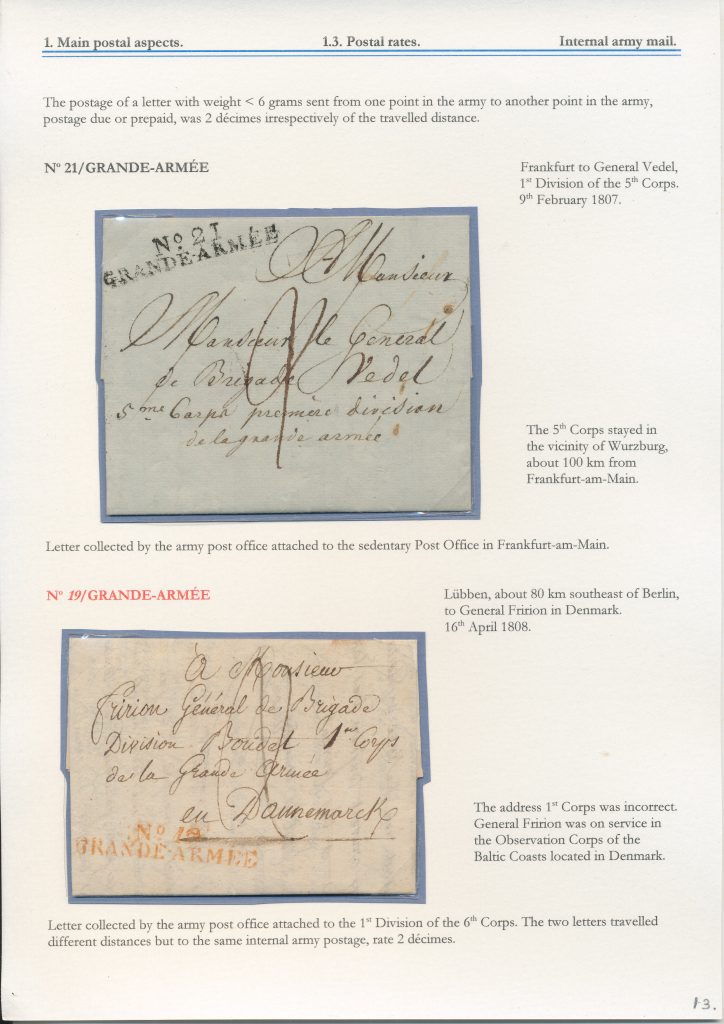 1. Main postal aspects. 1.3. Postal rates. Internal army mail.
The postage of a letter with weight < 6 grams sent from one point in the army to another point in the army,
postage due or prepaid, was 2 décimes irrespectively of the travelled distance.
Nº 21/GRANDE-ARMÉE
Frankfurt to General Vedel,
1st Division of the 5th Corps.
9th February 1807.
Nº 21
GRANDE-ARMÉE
A Monsieur
Monsieur le General
de Brigade Vedel
5me Corps première division
de la grande armée
The 5th Corps stayed in
the vicinity of Wurzburg,
about 100 km from
Frankfurt-am-Main.
Letter collected by the army post office attached to the sedentary Post Office in Frankfurt-am-Main.
Nº 19/GRANDE-ARMÉE
Lübben, about 80 km southeast of Berlin,
to General Fririon in Denmark.
16th April 1808.
à Monsieur
Fririon Général de Brigade
Division Boudet 1er Corps
de la Grande Armée
en Dannemarck
Nº 19
GRANDE-ARMÉE
The address 1st Corps was incorrect.
General Fririon was on service in
the Observation Corps of the
Baltic Coasts located in Denmark.
Letter collected by the army post office attached to the 1st Division of the 6th Corps. The two letters travelled
different distances but to the same internal army postage, rate 2 décimes.
13.